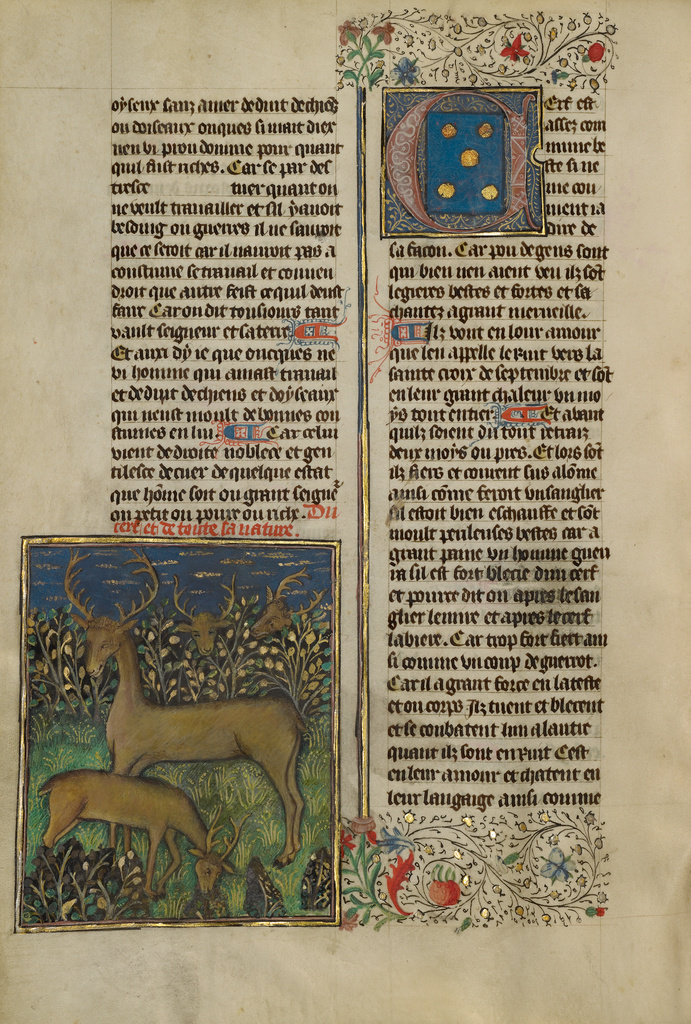 oyseux sanz amer deduit de chiens
ou doiseaux onques si mait diex
nen vi preudomme pour quant
quil fust riches. Car se par des
tresce tuer quant on
ne veult travailler et sil y avoit
besoing ou guerres il ne sauroit
que ce seroit car il nauroit pas a
coustume se travail et conven
droit que autre feist ce quil deust
faire Car on dit tousiours tant
vault seigneur et sa terre
Et auxi dy ie que oncques ne
vi homme qui amast travail
et deduit de chiens et doyseaux
qui neust moult de bonnes cou
stumes en lui Car celui
vient de droite noblece et gen
tilesce de cuer de quelque estat
que home soit ou grant seigne
ou petit ou poure ou riche. Du
cerf et de toute sa nature.
Cerf est
assez com
mune be
ste si ne
me con
vient ia
dire de
sa facon. Car pou de gens sont
qui bien nen aient veu ilz sot
legieres bestes et fortes et sa
chantez a grant merueille.
Ilz vont en lour amour
que len appelle le ruit vers la
sainte croix de septembre et sot
en leur grant chaleur un mo
ys tout entier Et avant
quilz soient du tout retraiz
deux moys ou pres. Et lors sot
ilz fiers et courent sus a lome
ainsi come feroit un sanglier
sil estoit bien eschauffe et sot
moult perilleuses bestes car a
grant paine un homme gueri
ra sil est fort blecie dun cerf
et pource dit on apres le san
glier le mire et apres le cerf
la biere. Car trop fort fiert aui
si comme un coup de guerrot.
Car il a grant force en la teste
et ou corps Ilz tuent et blecent
et se combatent lun a lautre
quant ilz sont en ruit Cest
en leur amour et chantent en
leur langaige ainsi comme